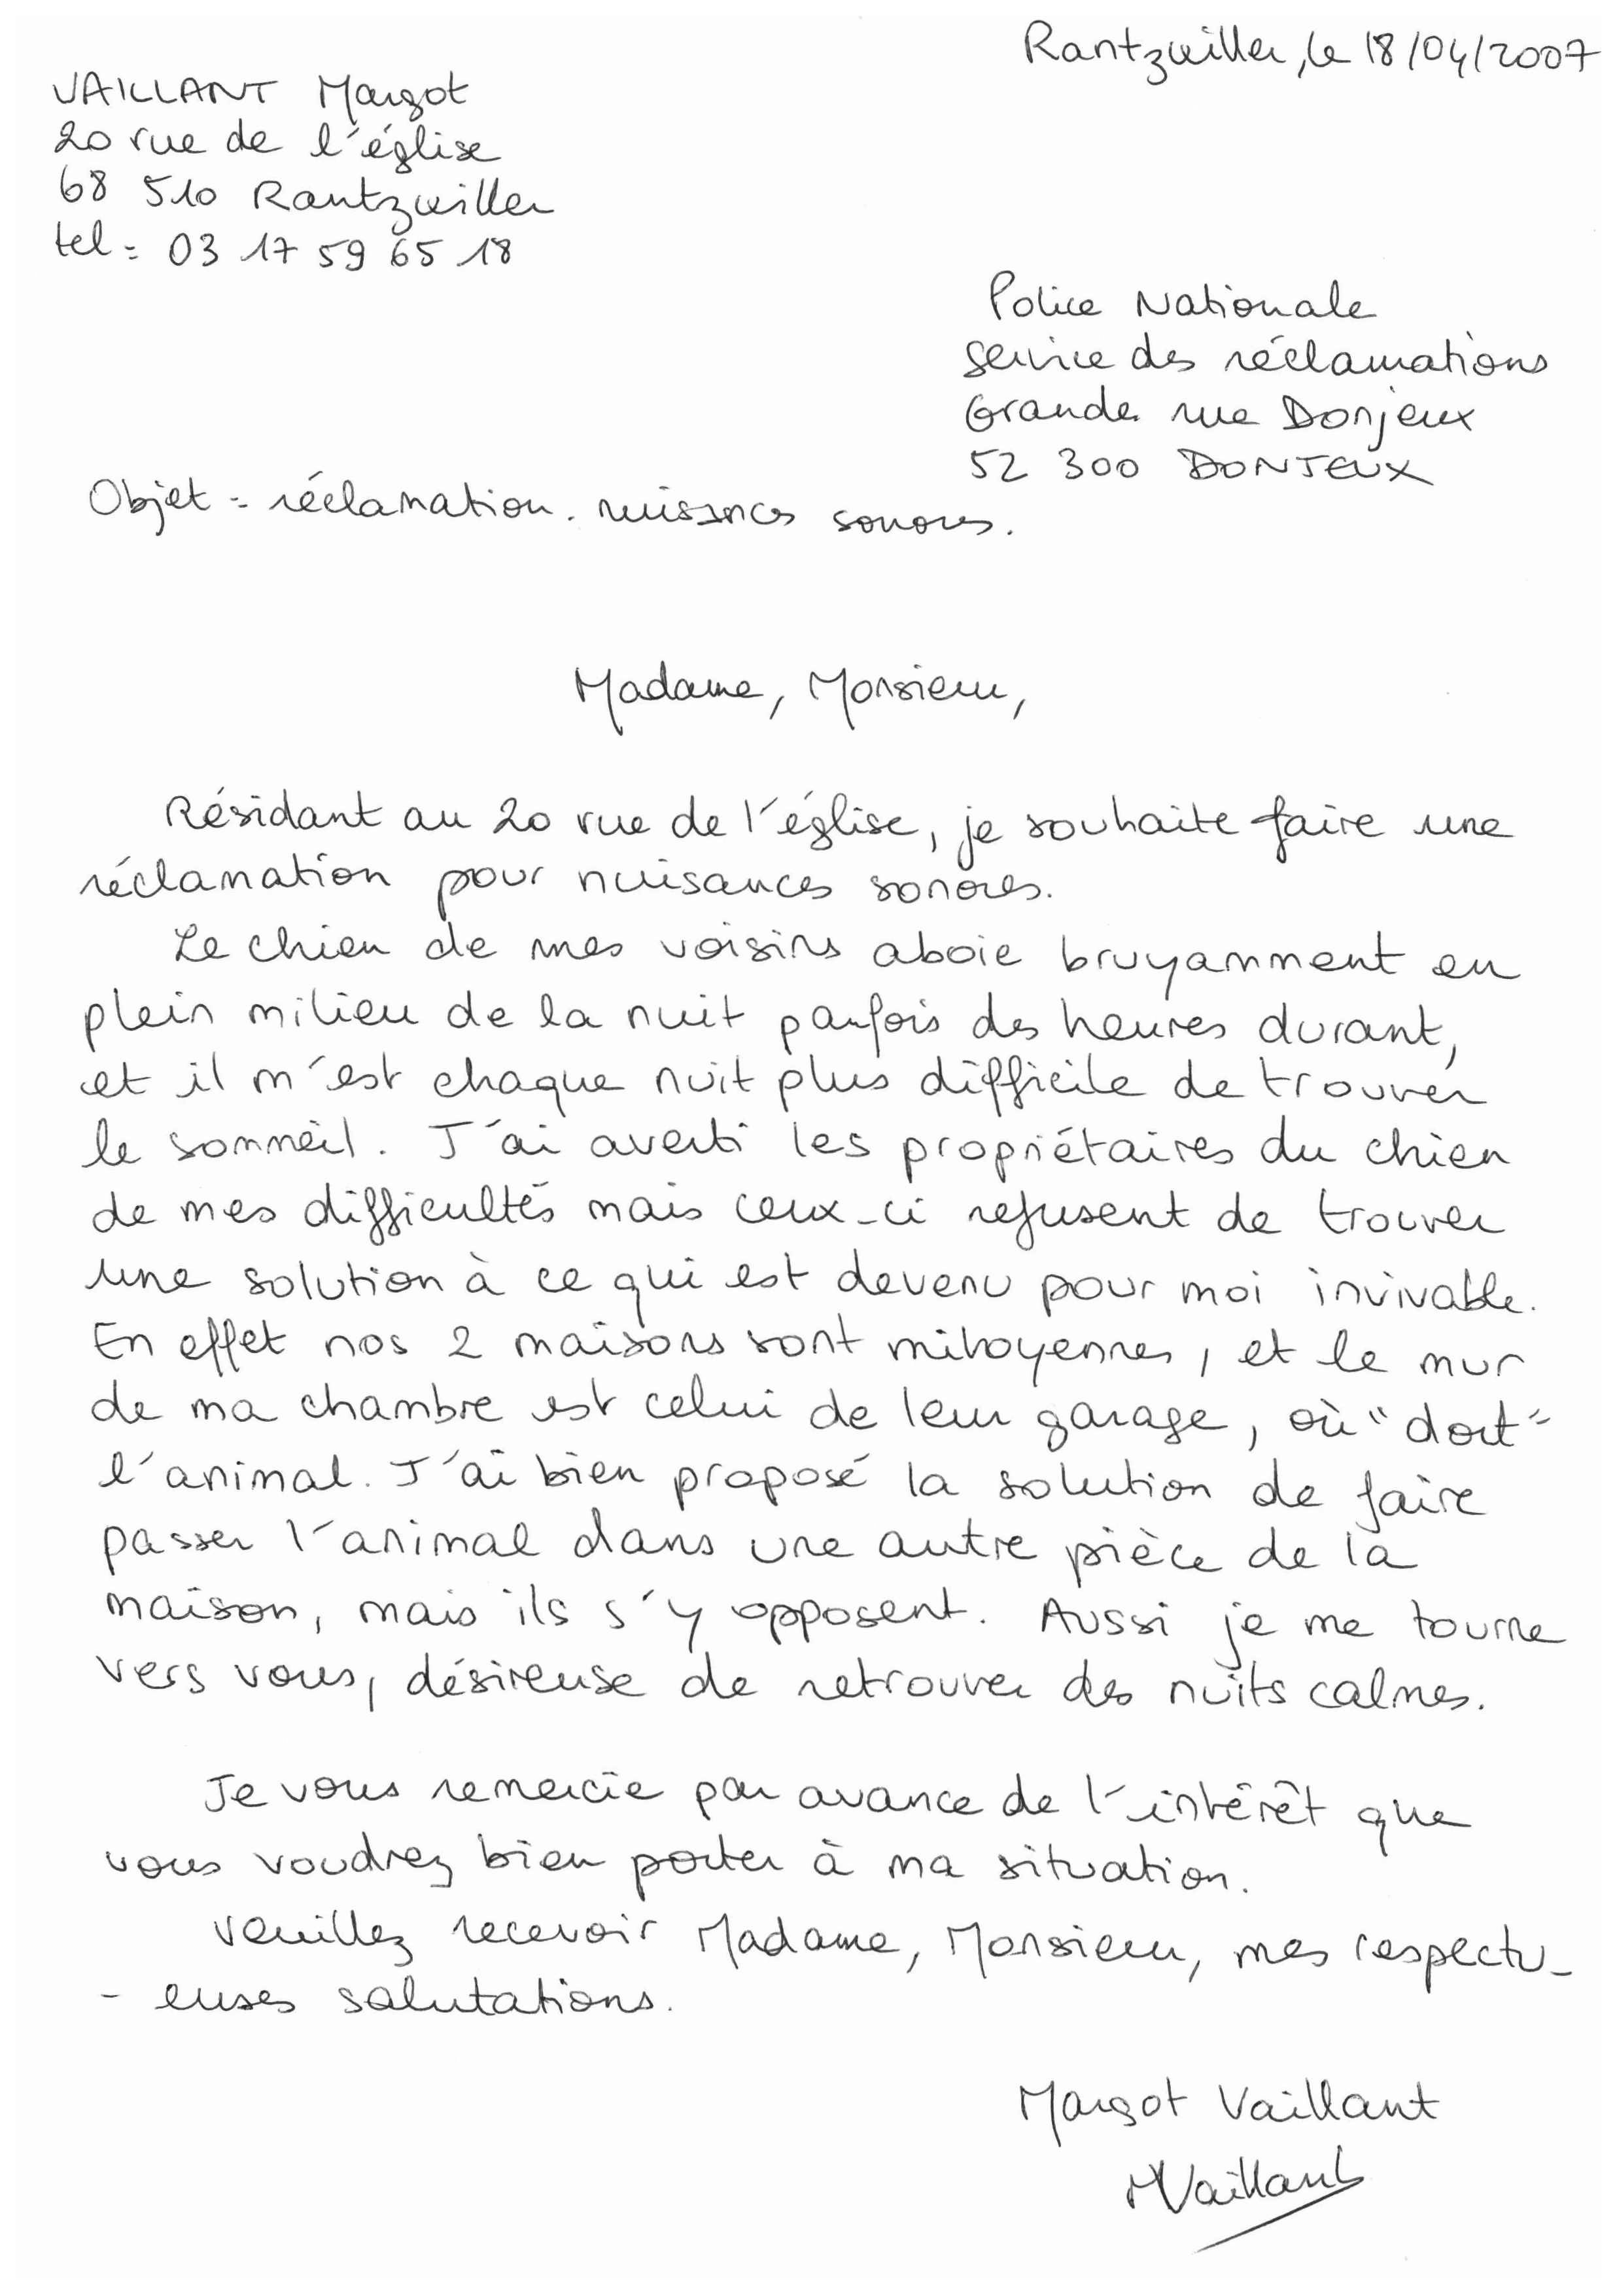 Rantzwiller, le 18/04/2007
VAILLANT Margot
20 rue de l'église
68 510 Rantzwiller
tel = 03 17 59 65 18
Police Nationale
service des réclamations
Grande rue Donjeux
52 300 DONJEUX
Objet = réclamation. nuisances sonores.
Madame, Monsieur,
Résidant au 20 rue de l'église, je souhaite faire une
réclamation pour nuisances sonores.
Le chien de mes voisins aboie bruyamment en
plein milieu de la nuit parfois des heures durant,
et il m'est chaque nuit plus difficile de trouver
le sommeil. J'ai averti les propriétaires du chien
de mes difficultés mais ceux-ci refusent de trouver
une solution à ce qui est devenu pour moi invivable.
En effet nos 2 maisons sont mitoyennes, et le mur
de ma chambre est celui de leur garage, où "dort"
l'animal. J'ai bien proposé la solution de faire
passer l'animal dans une autre pièce de la
maison, mais ils s'y opposent. Aussi je me tourne
vers vous, désireuse de retrouver des nuits calmes.
Je vous remercie par avance de l'intérêt que
vous voudrez bien porter à ma situation.
Veuillez recevoir Madame, Monsieur, mes respectu-
- euses salutations.
Margot Vaillant
MVaillant